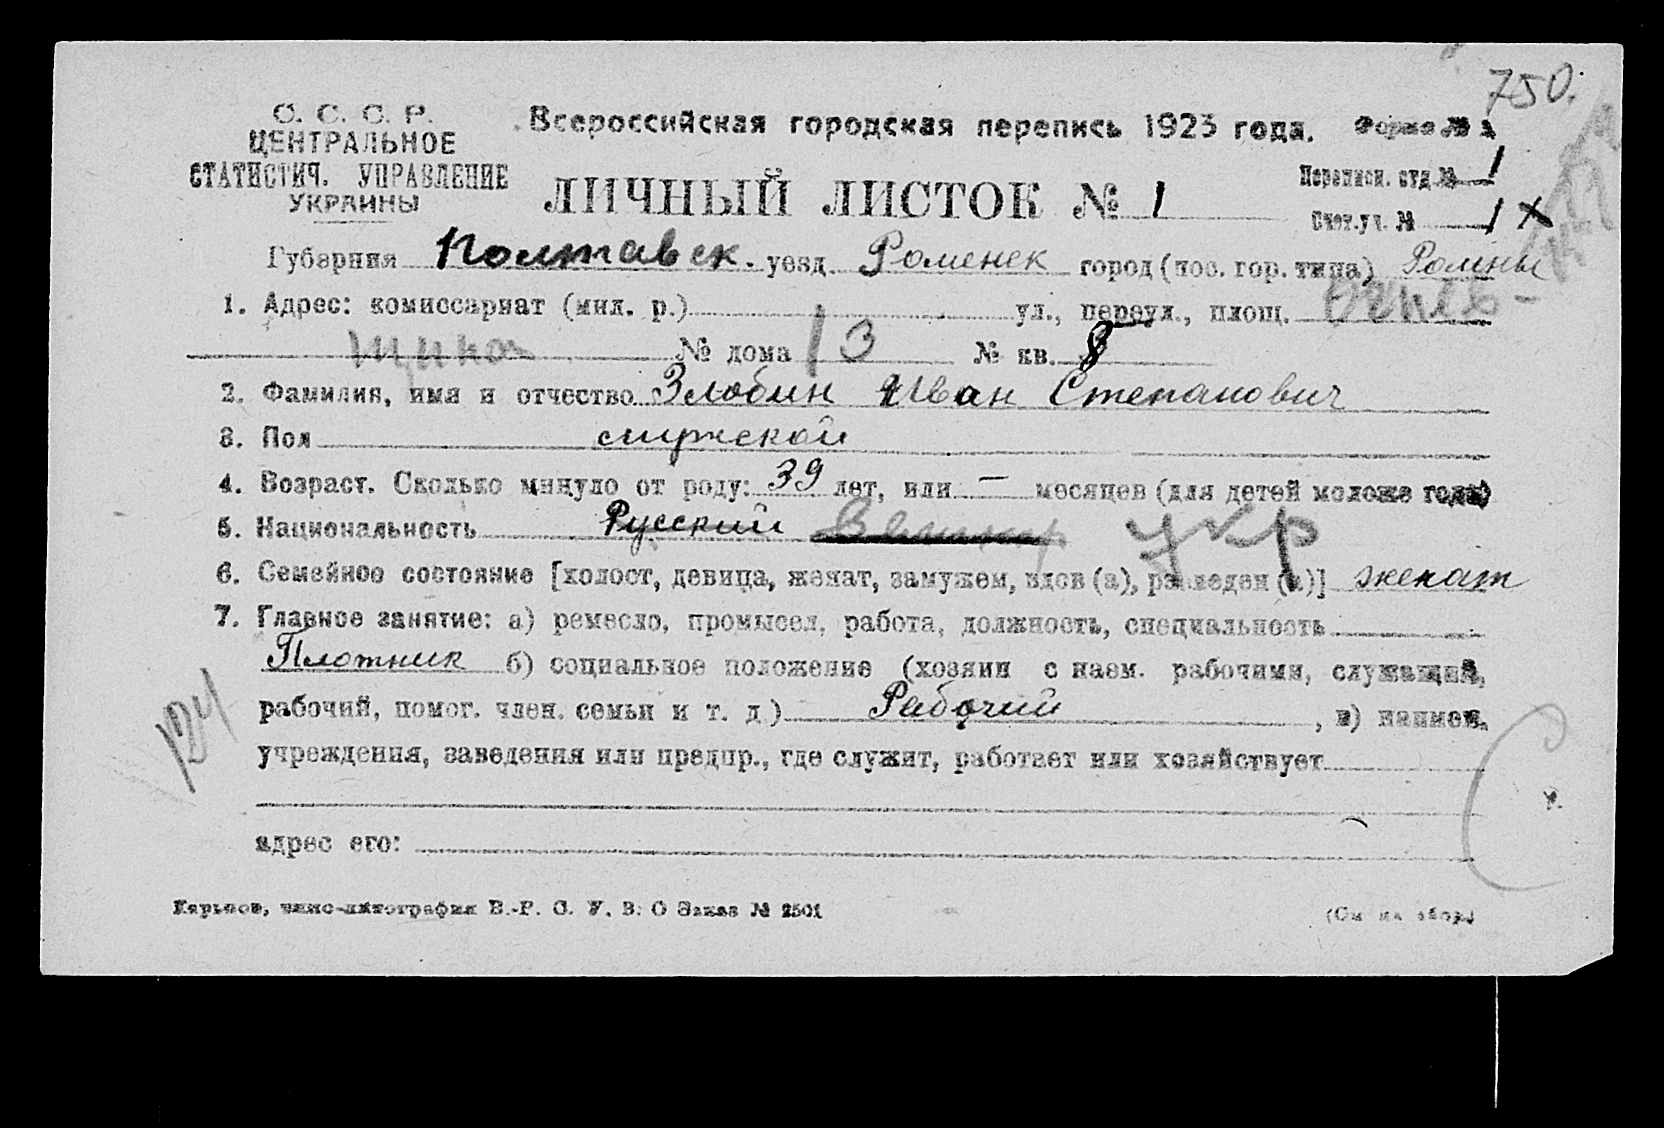 750.
С. С. С. Р.
ЦЕНТРАЛЬНОЕ
СТАТИСТИЧ. УПРАВЛЕНИЕ
УКРАИНЫ
Всероссийская городская перепись 1923 года. Форма №
ЛИЧНЫЙ ЛИСТОК № 1
Переписн. отд. № 1
Счет.уч. № 1 X
Губерния Полтавск. уезд Роменск город (пос. гор. типа) Ромны
1. Адрес: комиссариат (мил. р.) ул., переул., площ.
№ дома 13 № кв. 8
2. Фамилия, имя и отчество Злобин Иван Степанович
3. Пол мужской
4. Возраст. Сколько минуло от роду: 39 лет, или — месяцев (для детей моложе года)
5. Национальность Русский укр
6. Семейное состояние [холост, девица, женат, замужем, вдов (а), разведен (а)] женат
7. Главное занятие: а) ремесло, промысел, работа, должность, специальность
Плотник б) социальное положение (хозяин с наем. рабочими, служащий,
рабочий, помог. член. семьи и т. д.) Рабочий , в) наимен.
учреждения, заведения или предпр., где служит, работает или хозяйствует
адрес его:
124
Харьков, типо-литография В.-Р. С. У. В. О Заказ № 2501
(См на обор.)